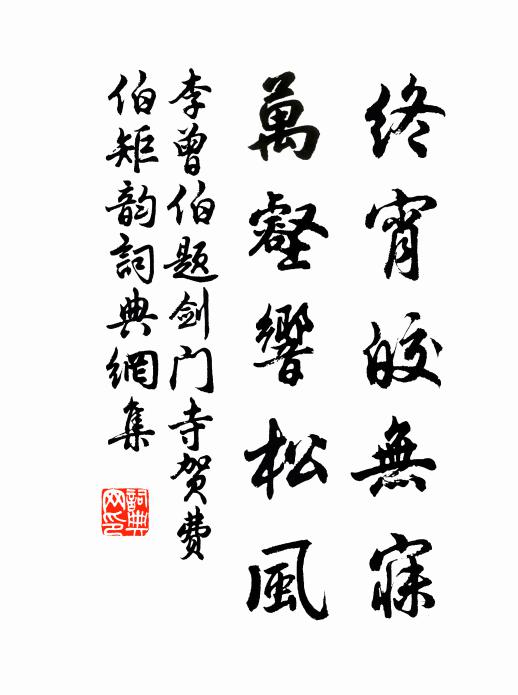 終宵皎無寐
萬壑響松風
李曾伯題剑门寺贺费
伯矩韵詞典網集
詞典网印